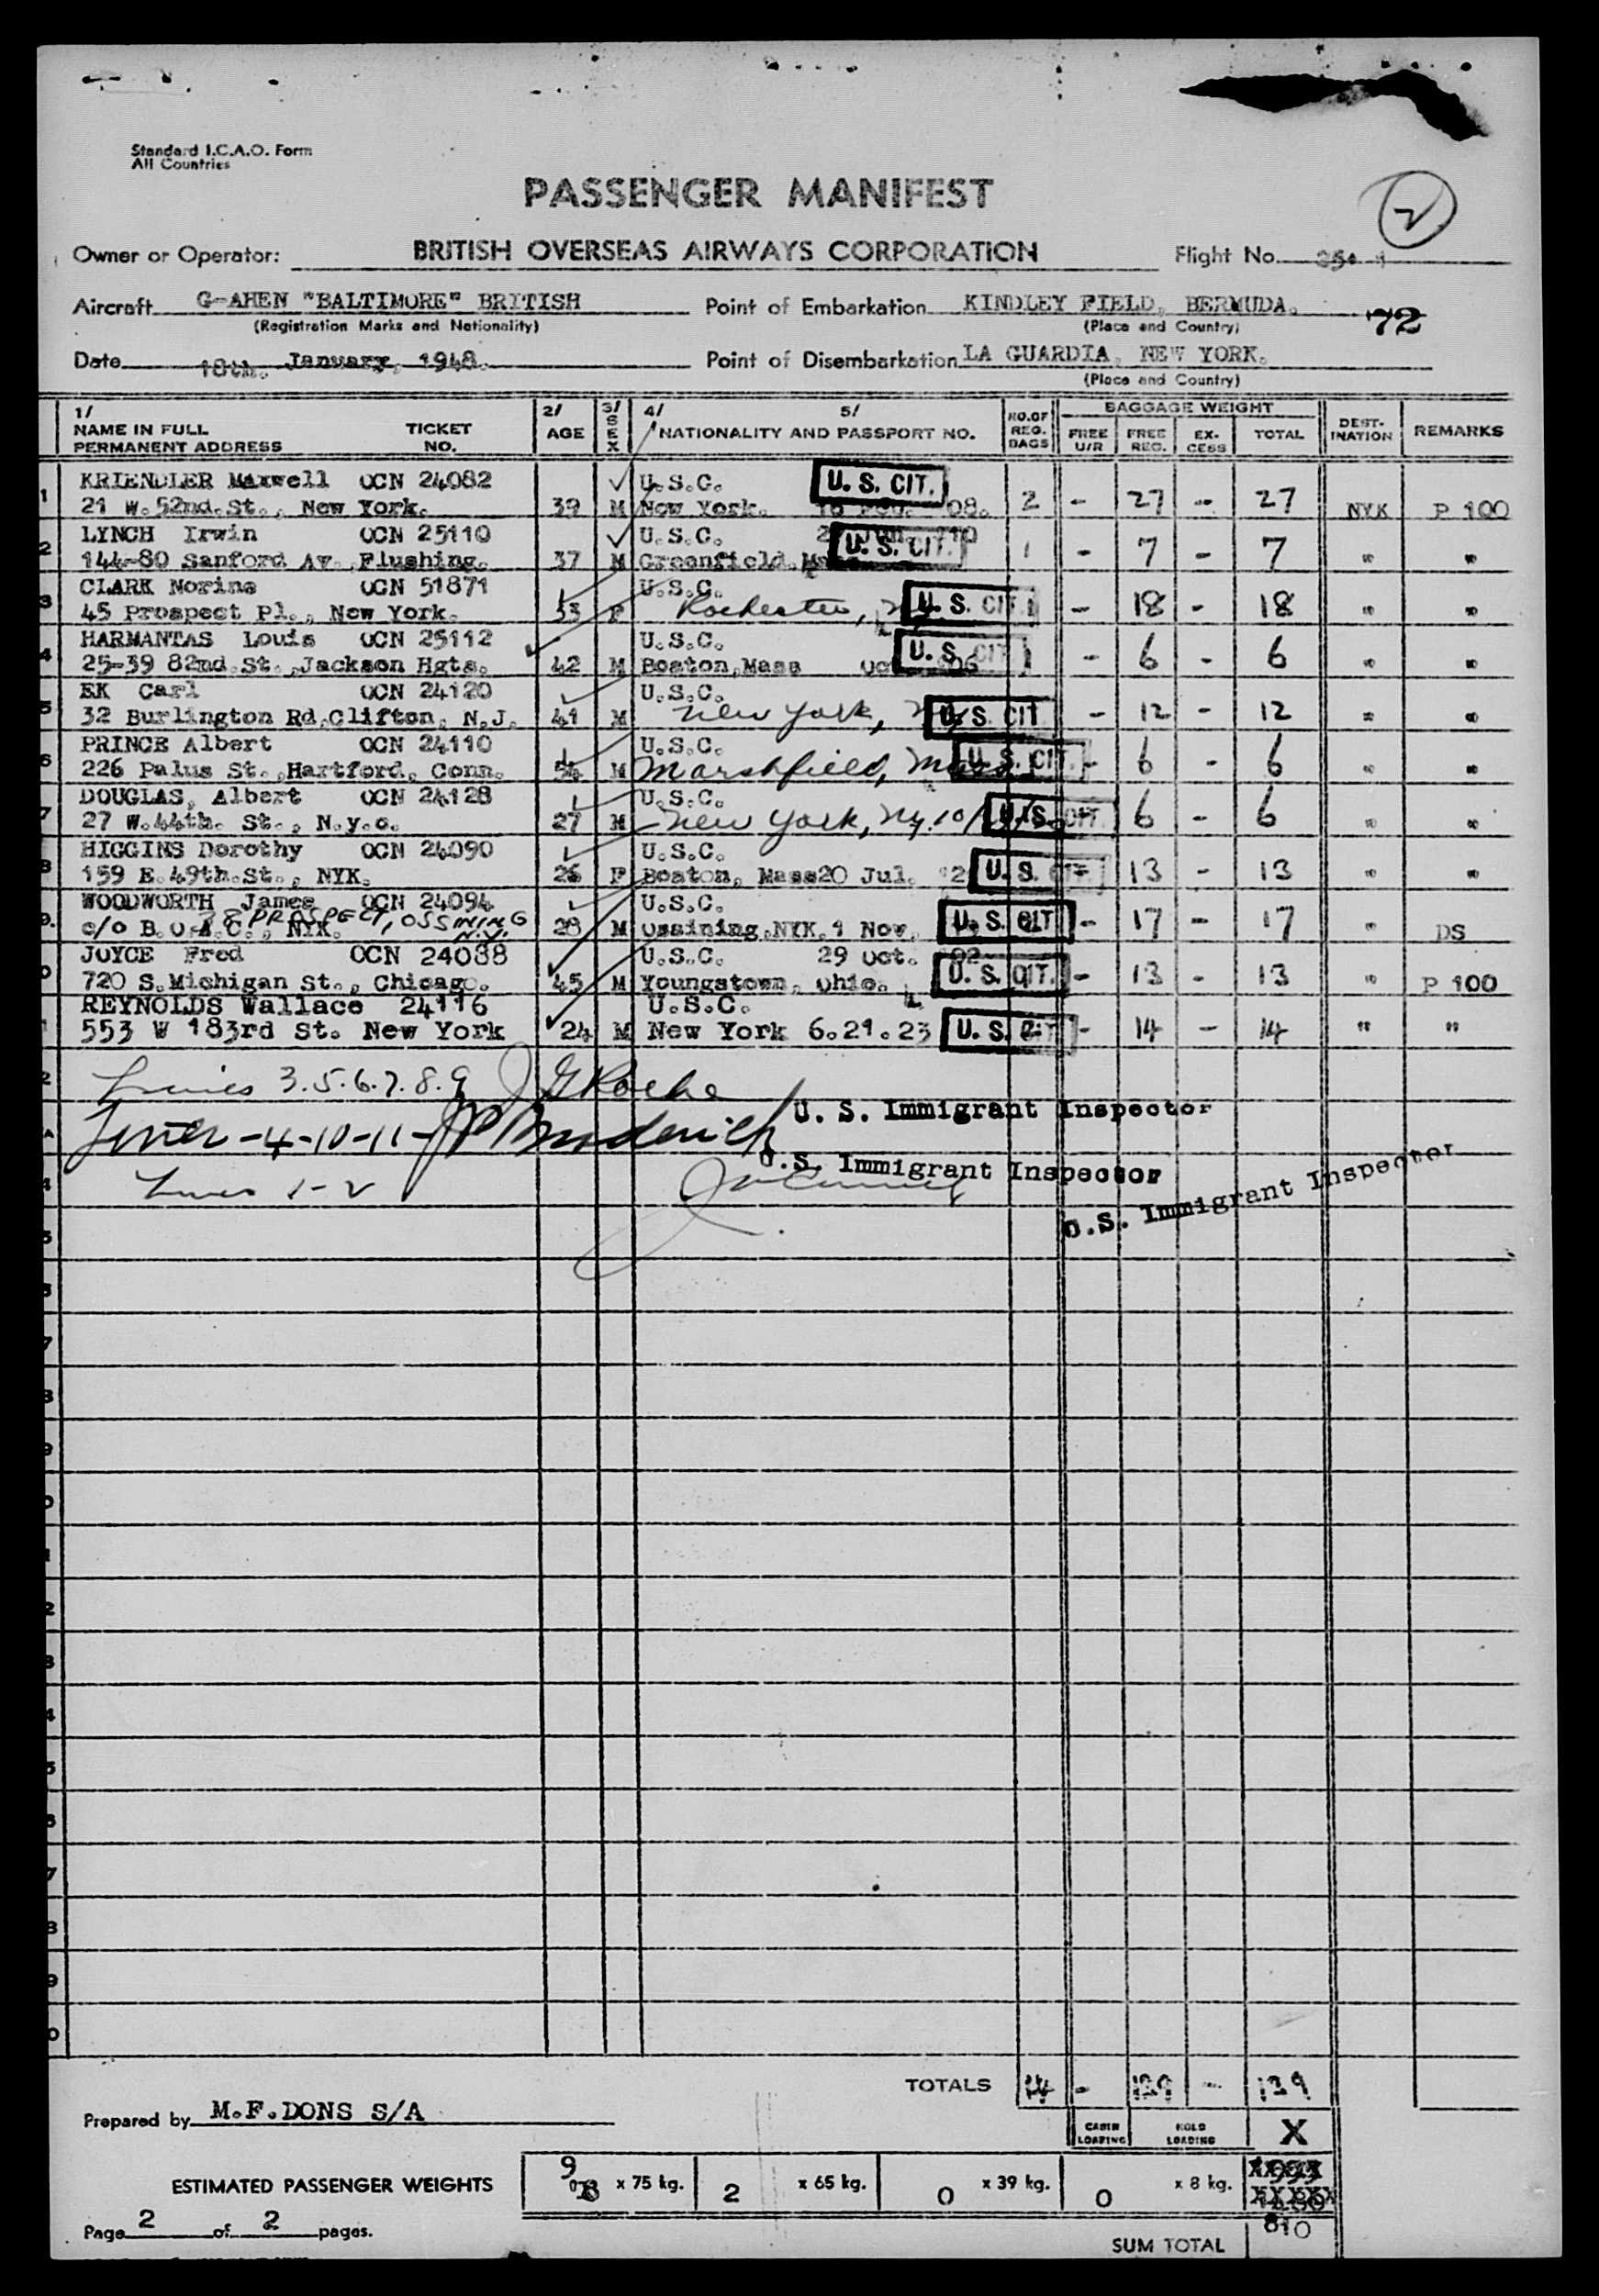 Standard I.C.A.O. Form
All Countries
PASSENGER MANIFEST
2
Owner or Operator: BRITISH OVERSEAS AIRWAYS CORPORATION Flight No.
Aircraft G-AHEN "BALTIMORE" BRITISH Point of Embarkation KINDLEY FIELD, BERMUDA. 72
(Registration Marks and Nationality) (Place and Country)
Date 18th. January, 1948. Point of Disembarkation LA GUARDIA, NEW YORK.
(Place and Country)
1/ NAME IN FULL PERMANENT ADDRESS TICKET NO. 2/ AGE 3/ SEX 4/ 5/ NATIONALITY AND PASSPORT NO. NO.OF REG. BAGS BAGGAGE WEIGHT FREE U/R FREE REG. EX-CESS TOTAL DEST-INATION REMARKS
KRIENDLER Maxwell OCN 24082 U.S.C. U. S. CIT.
21 W.52nd.St., New York. 39 M New York. 08. 2 - 27 - 27 NYK P 100
LYNCH Irwin OCN 25110 U.S.C. U. S. CIT.
144-80 Sanford Av. Flushing. 37 M Greenfield. 1 - 7 - 7 " "
CLARK Norine OCN 51871 U.S.C.
45 Prospect Pl., New York. 33 F Rochester, U. S. CIT. 1 - 18 - 18 " "
HARMANTAS Louis OCN 25112 U.S.C. U. S. CIT
25-39 82nd.St., Jackson Hgts. 42 M Boston,Mass Oct 06 1 - 6 - 6 " "
EK Carl OCN 24120 U.S.C.
32 Burlington Rd,Clifton, N.J. 41 M New York, U. S. CIT - 12 - 12 " "
PRINCE Albert OCN 24110 U.S.C.
226 Palus St.,Hartford, Conn. M Marshfield, Mass U. S. CIT. - 6 - 6 " "
DOUGLAS, Albert OCN 24128 U.S.C.
27 W.44th. St., N.y.c. 27 M New York, Ny. 10/ U. S. CIT. 6 - 6 " "
HIGGINS Dorothy OCN 24090 U.S.C.
159 E.49th.St., NYK. 26 F Boston, Mass20 Jul. U. S. CIT - 13 - 13 " "
WOODWORTH James OCN 24094 U.S.C.
38 PROSPECT, OSSINING N.Y.
c/o B.O.A.C., NYK. 28 M Ossining,NYK. 1 Nov. U. S. CIT - 17 - 17 " DS
JOYCE Fred OCN 24088 U.S.C. 29 Oct. 02
720 S.Michigan St., Chicago. 45 M Youngstown, Ohio. U. S. CIT. - 13 - 13 " P 100
REYNOLDS Wallace 24116 U.S.C.
553 W 183rd St. New York 24 M New York 6.21.23 U. S. CIT - 14 - 14 " "
Lines 3.5.6.7.8.9 J G Roche
U. S. Immigrant Inspector
Lines-4-10-11- JP Broderick
U.S. Immigrant Inspector
Lines 1-2
U.S. Immigrant Inspector
TOTALS 14 - 139 - 139
Prepared by M.F.DONS S/A
CABIN LOADING HOLD LOADING X
ESTIMATED PASSENGER WEIGHTS 9 x 75 kg. 2 x 65 kg. 0 x 39 kg. 0 x 8 kg.
Page 2 of 2 pages.
SUM TOTAL 810